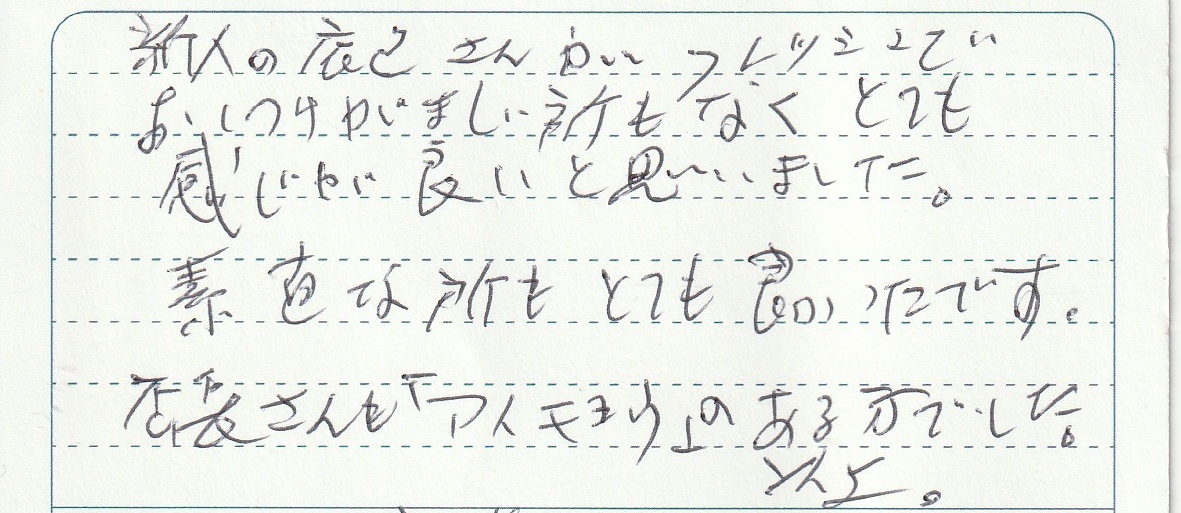 新人の店員さんがフレッシュで
おしつけがましい所もなくとても
感じが良いと思いました。
素直な所もとても良かったです。
店長さんも「アイキョウ」のある方でした。